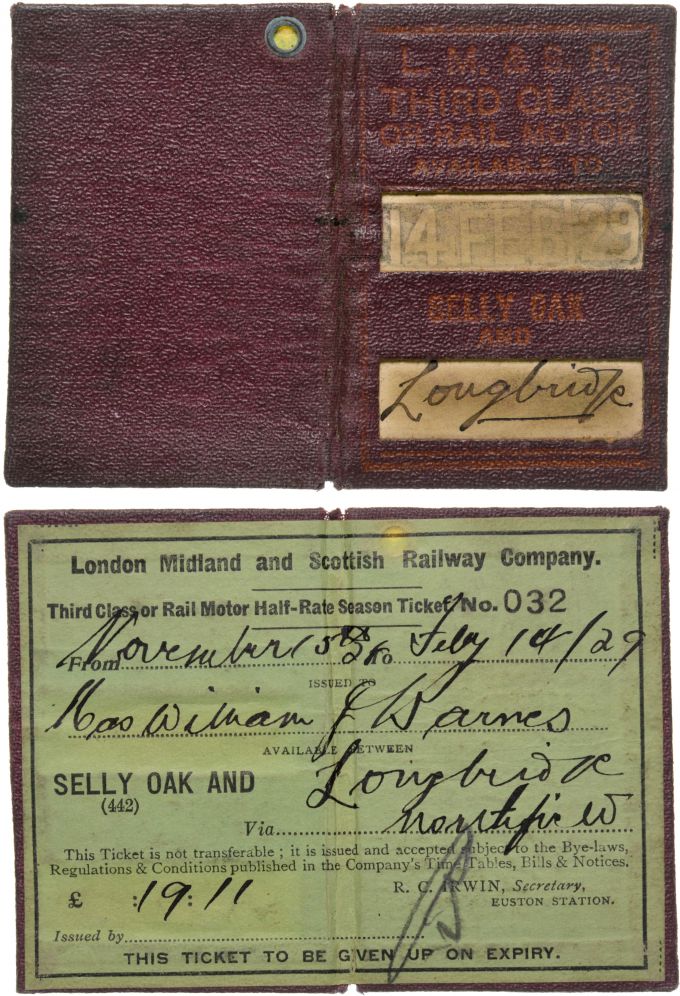 L. M. & S. R.
THIRD CLASS
OR RAIL MOTOR
AVAILABLE TO
14 FEB 29
SELLY OAK
AND
Longbridge
London Midland and Scottish Railway Company.
Third Class or Rail Motor Half-Rate Season Ticket No. 032
From November 15th 28 to Feby 14/29
ISSUED TO
Mas William J Barnes
AVAILABLE BETWEEN
SELLY OAK AND Longbridge
(442)
Via Northfield
This Ticket is not transferable; it is issued and accepted subject to the Bye-laws,
Regulations & Conditions published in the Company's Time Tables, Bills & Notices.
£ : 19 : 11 R. C. IRWIN, Secretary,
EUSTON STATION.
Issued by
THIS TICKET TO BE GIVEN UP ON EXPIRY.